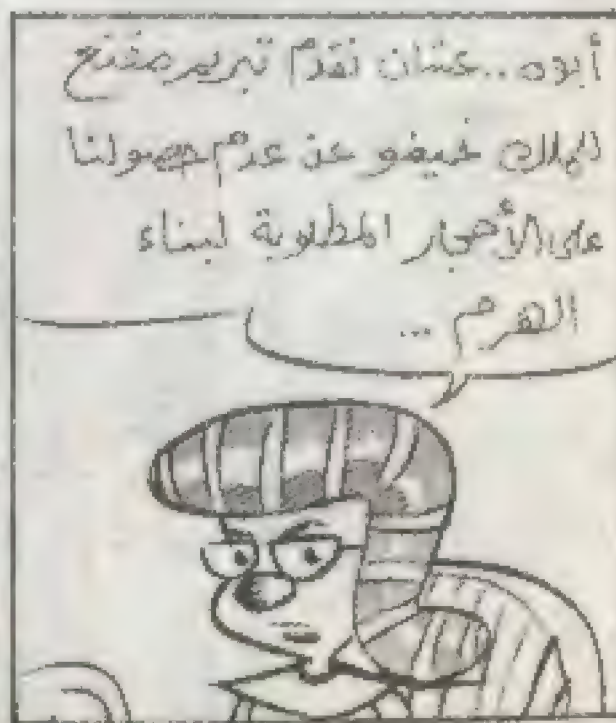 أيوه.. عشان نقدم تبرير مقنع
للملك خيفو عن عدم حصولنا
على الأحجار المطلوبة لبناء
الهرم ...